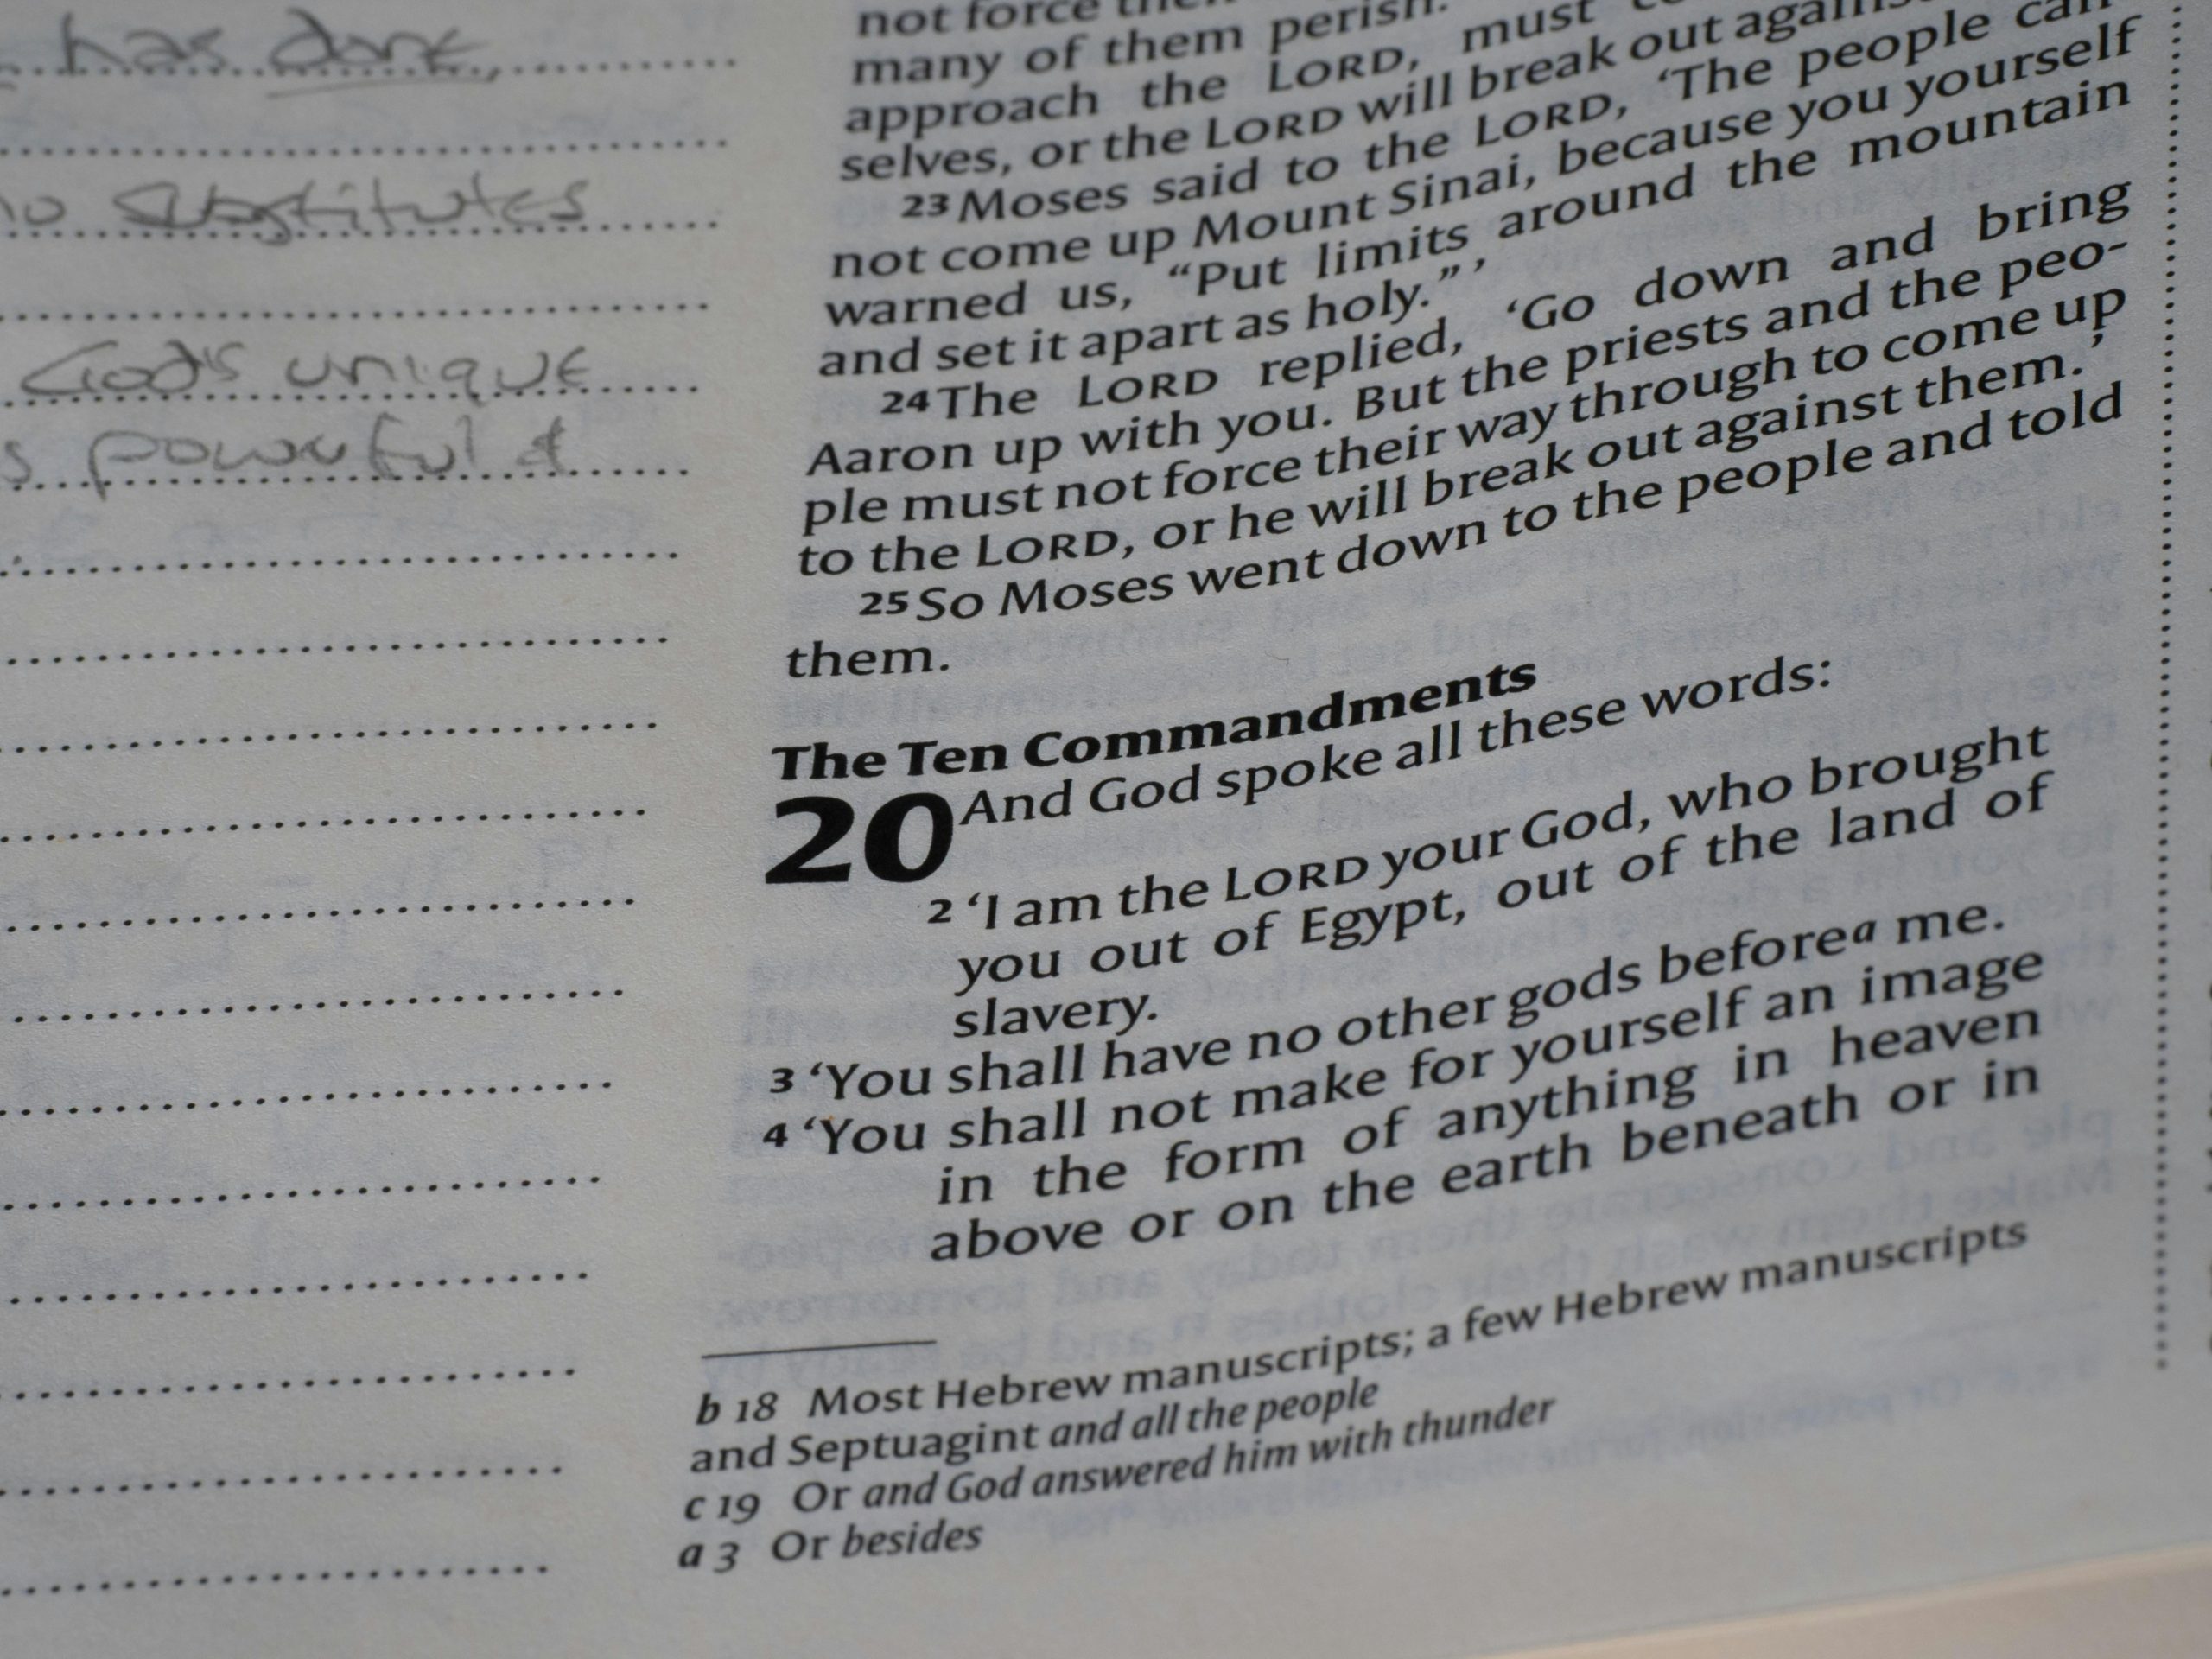 has done,
no substitutes
God's unique
s powerful &
not force
many of them perish.
approach the LORD, must
selves, or the LORD will break out against
23 Moses said to the LORD, ‘The people can
not come up Mount Sinai, because you yourself
warned us, “Put limits around the mountain
and set it apart as holy.” ’
24 The LORD replied, ‘Go down and bring
Aaron up with you. But the priests and the peo-
ple must not force their way through to come up
to the LORD, or he will break out against them.’
25 So Moses went down to the people and told
them.
The Ten Commandments
20 And God spoke all these words:
2 ‘I am the LORD your God, who brought
you out of Egypt, out of the land of
slavery.
3 ‘You shall have no other gods before a me.
4 ‘You shall not make for yourself an image
in the form of anything in heaven
above or on the earth beneath or in
b 18 Most Hebrew manuscripts; a few Hebrew manuscripts
and Septuagint and all the people
c 19 Or and God answered him with thunder
a 3 Or besides